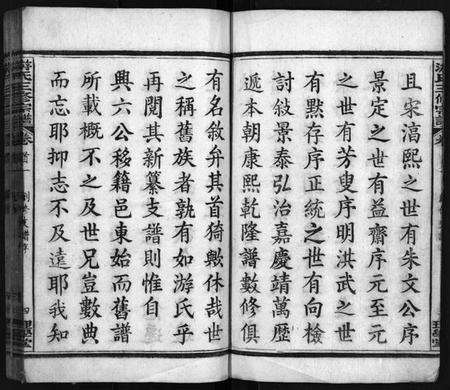 且宋淳熙之世有朱文公序
景定之世有益齋序元至元
之世有芳叟序明洪武之世
有默存序正統之世有向檢
討敍景泰弘治嘉慶靖萬歷
遞本朝康熙乾隆譜數修俱
有名敘弁其首猗歟休哉世
之稱舊族者孰有如游氏乎
再閱其新纂支譜則惟自
興六公移籍邑東始而舊譜
所載概不之及世兄豈數典
而忘耶抑志不及遠耶我知
卷首
四